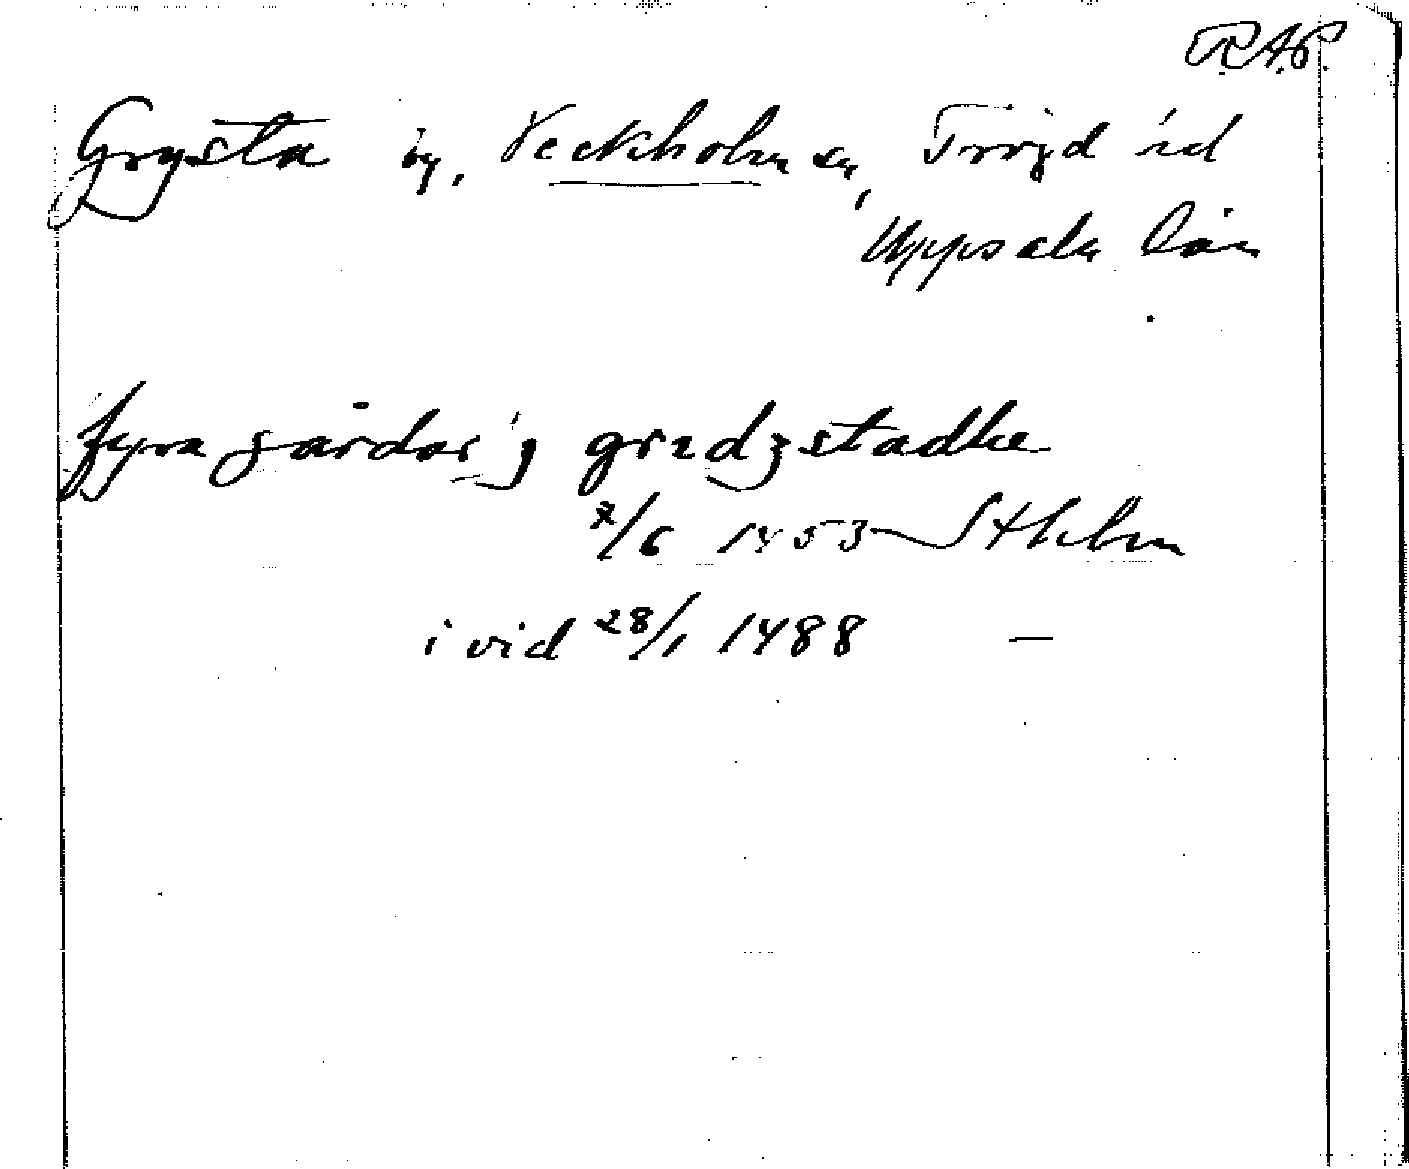 R.A.P.
Grysta by, Veckholms sn, Trögd hd
Uppsala län
fyra gårdar j gredzstadhe
7/6 1453 Sthlm
i vid 28/1 1488 —